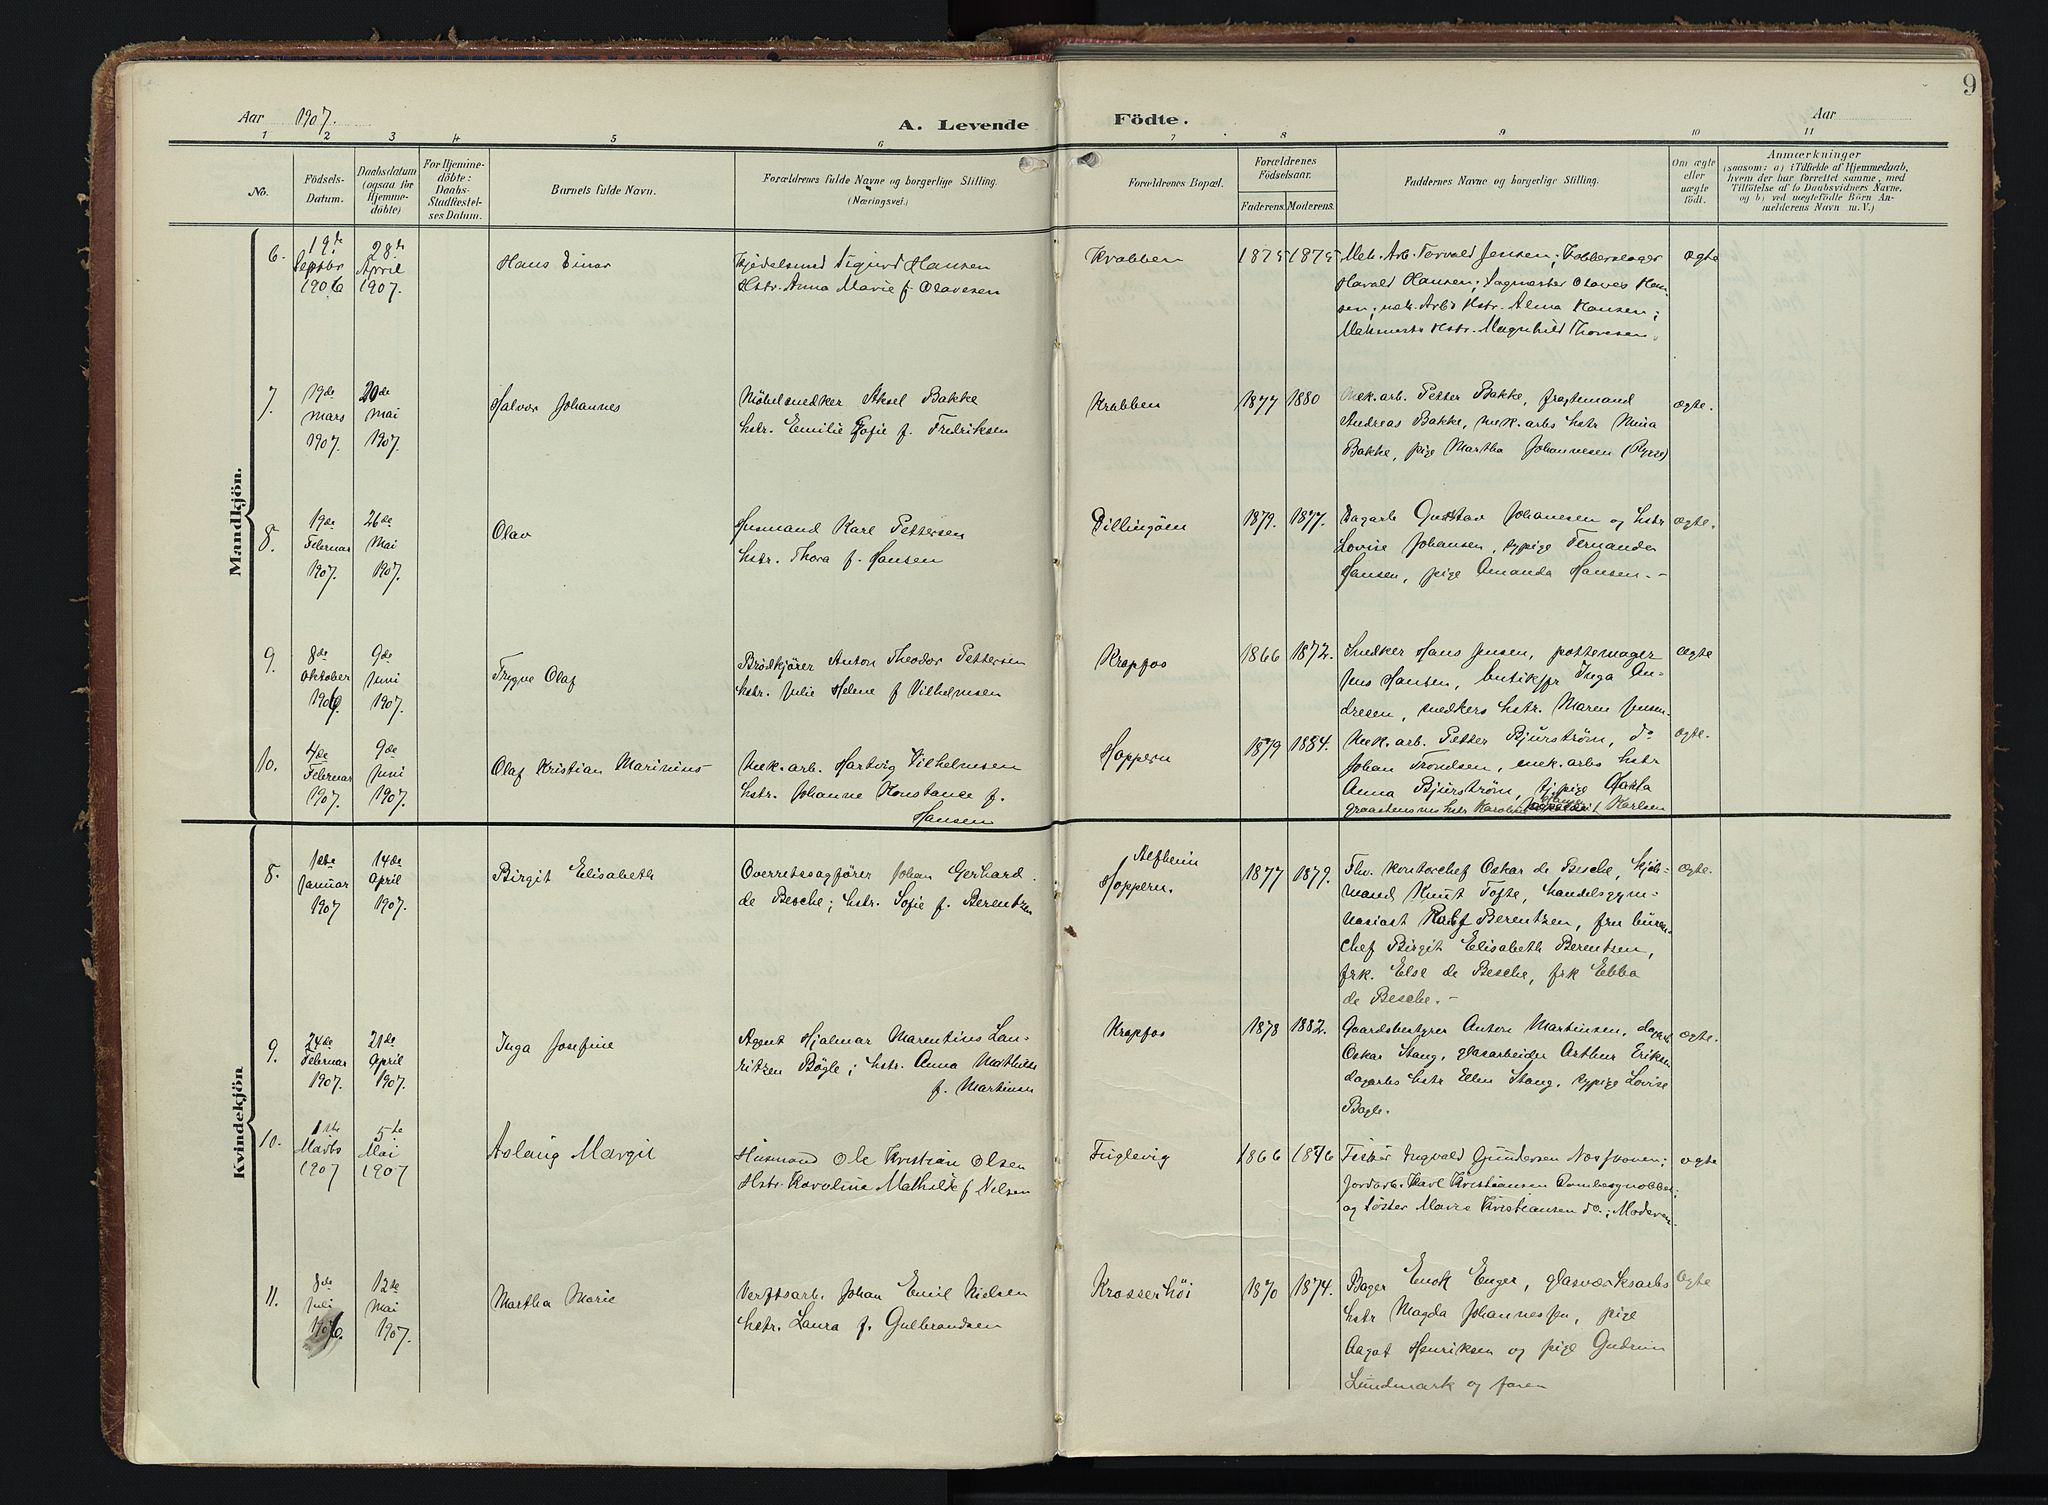 9
Aar 1907.
A. Levende Födte.
Aar
1 2 3 4 5 6 7 8 9 10 11
No.
Födsels-
Datum.
Daabsdatum
(ogsaa for
Hjemme-
döbte)
For Hjemme-
döbte:
Daabs-
Stadfæstel-
ses Datum.
Barnets fulde Navn.
Forældrenes fulde Navne og borgerlige Stilling.
(Næringsvei.)
Forældrenes Bopæl.
Forældrenes
Födselsaar.
Faderens. Moderens.
Faddernes Navne og borgerlige Stilling.
Om ægte
eller
uægte
födt.
Anmærkninger
(saasom: a) i Tilfælde af Hjemmedaab,
hvem der har forrettet samme, med
Tilföielse af to Daabsvidners Navne.
og b) ved uægtefödte Börn An-
melderens Navn m. V.)
Mandkjön.
6.
19de
Septbr
1906
28de
April
1907.
Hans Einar
Kjedelsmed Sigurd Hansen
Hstr. Anna Marie f. Olavesen
Krabben
1875 1875
Mek. Arb. Torvald Jensen; Kobberslager
Harald Hansen; Sagmester Olaves Han-
sen; mek. Arbs Hstr. Alma Hansen;
Hstr. Magnhild Thoresen.
ægte
7.
19de
mars
1907.
20de
mai
1907.
Halvor Johannes
Möbelsnedker Aksel Bakke
hstr. Emilie Sofie f. Fredriksen
Krabben
1877 1880
Mek. arb. Petter Bakke, fragtemand
Andreas Bakke, mek. arbs hstr Mina
Bakke, pige Martha Johannesen (Rygge)
ægte.
8.
19de
Februar
1907.
26de
Mai
1907.
Olav
Husmand Karl Pettersen
hstr. Thora f. Hansen
Dillingöen
1879. 1877.
Dagarb Gustav Johansen og hstr
Lovise Johansen, sypige Fernanda
Hansen, pige Amanda Hansen.-
ægte.
9.
8de
Oktober
1906.
9de
Juni
1907.
Trygve Olaf
Brödkjörer Anton Theodor Pettersen
hstr. Julie Helene f Vilhelmsen
Krapfos
1866 1872.
Snedker Hans Jensen, pottemager
Jens Hansen, butikfr Inga An-
dresen, snedkers hstr. Maren Jensen.
ægte
10.
4de
Februar
1907.
9de
Juni
1907.
Olaf Kristian Marinius
Mek. arb. Hartvig Vilhelmsen
hstr. Johanne Konstance f.
Hansen
Hoppern
1879 1884.
Mek. arb. Petter Bjurström, do
Johan Trondsen, mek. arbs hstr
Anna Bjurström, pige
hstr Karlsen
ægte.
Kvindekjön
8.
Januar
1907
14de
April
1907.
Birgit Elisabeth
Overretssagförer Johan Gerhard
de Besche; hstr. Sofie f. Berentzen
Alfheim
Hoppern.
1877 1879.
Fhv. kontorchef Oskar de Besche, kjöb-
mand Knut Tofte, handelsgym-
nasiast Ralf Berentzen, fru
chef Birgit Elisabeth Berentzen,
frk. Else de Besche, frk Ebba
de Besche.-
ægte.
9.
24de
Februar
1907.
21de
April
1907.
Inga Josefine
Agent Hjalmar Marentius Lau-
ritzen Bögle; hstr. Anna Mathilde
f. Martinsen
Krapfos
1878 1882.
Gaardsbestyrer Anton Martinsen, dagarb
Oskar Stang, glasarbeider Arthur Eriksen
dagarbs hstr Ellen Stang, sypige Lovise
Bøgle.
ægte.
10.
1ste
Marts
1907
5te
Mai
1907
Aslaug Margit
Husmand Ole Kristian Olsen
Hstr. Karoline Mathilde f Nilsen
Fuglevig
1866 1876
Fisker Ingvald Gundersen Næsskoven;
Jordarb. Karl Kristiansen
og Söster Marie Kristiansen do.; Moderen.
ægte
11.
8de
Juli
1906.
12de
Mai
1907.
Martha Marie
Verftsarb. Johan Emil Nielsen
hstr. Laura f. Gulbrandsen
Krosserhöi
1870 1874.
Bager Enok Enger, glasværksarbs
hstr Magda Johannessen, pige
Aagot Henriksen og pige Gudrun
Lundmark og faren
ægte